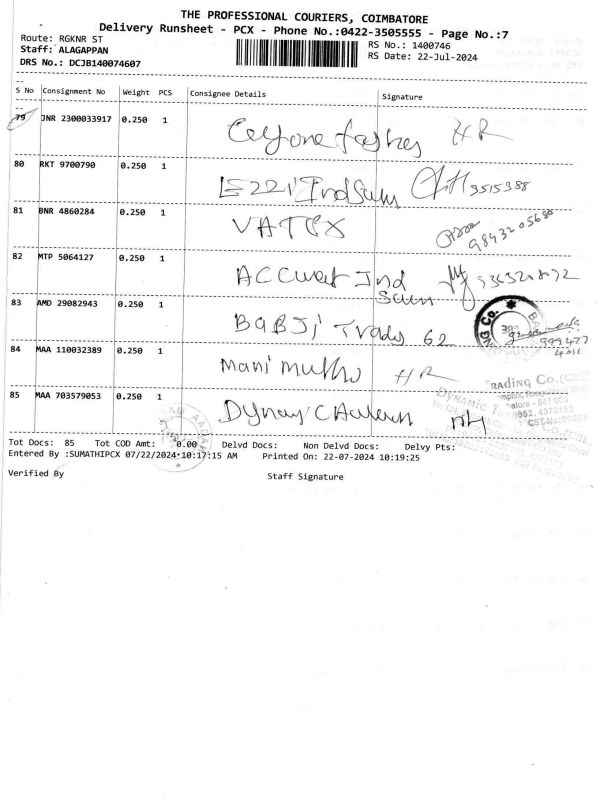 THE PROFESSIONAL COURIERS, COIMBATORE
Delivery Runsheet - PCX - Phone No.:0422-3505555 - Page No.:7
Route: RGKNR ST
RS No.: 1400746
Staff: ALAGAPPAN
RS Date: 22-Jul-2024
DRS No.: DCJB140074607
S No Consignment No Weight PCS Consignee Details Signature
79 JNR 2300033917 0.250 1 HR
80 RKT 9700790 0.250 1 Ezzi Ind Sum 9515388
81 BNR 4860284 0.250 1 VATEX
82 MTP 5064127 0.250 1 Accurat Ind
83 AMD 29082943 0.250 1 BABJi Trades 62
84 MAA 110032389 0.250 1 Mani Muthu HR
85 MAA 703579053 0.250 1
Tot Docs: 85 Tot COD Amt: 0.00 Delvd Docs: Non Delvd Docs: Delvy Pts:
Entered By :SUMATHIPCX 07/22/2024 10:17:15 AM Printed On: 22-07-2024 10:19:25
Verified By Staff Signature